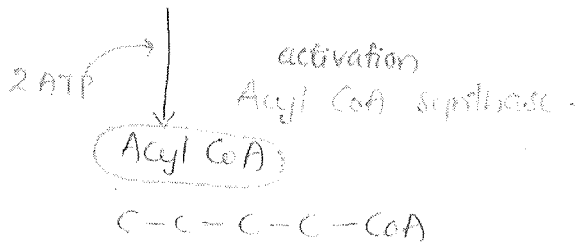 activation
2 ATP
Acyl CoA synthase.
Acyl CoA
C-C-C-C-CoA